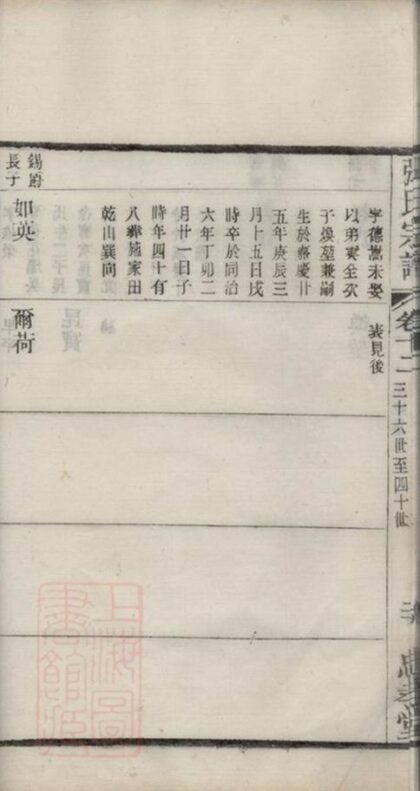 張氏宗譜
卷十二
三十六世至四十世
忠孝堂
表見後
字德嵩未娶
以弟實全次
子煥堃兼嗣
生於嘉慶廿
五年庚辰三
月十五日戌
時卒於同治
六年丁卯二
月廿一日子
時年四十有
八葬施家田
乾山巽向
錫爵
長子
如英
爾荷
上海圖
書館藏